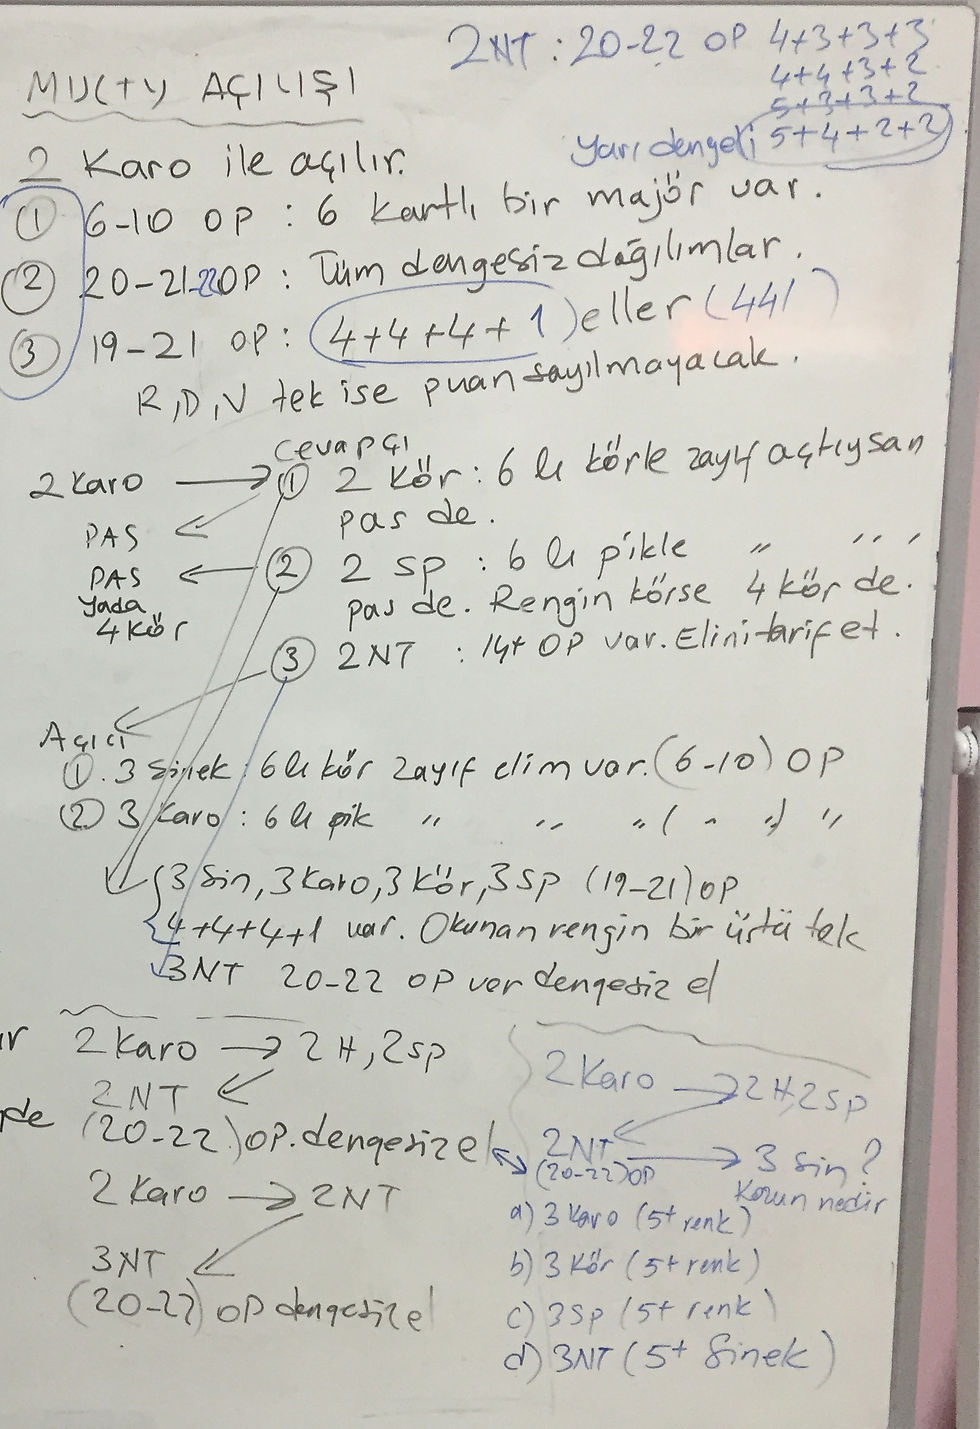 2NT : 20-22 OP 4+3+3+3
4+4+3+2
5+3+3+2
Yarı dengeli 5+4+2+2
MULTY AÇILIŞI
2 Karo ile açılır.
① 6-10 OP : 6 kartlı bir majör var.
② 20-21-22 OP : Tüm dengesiz dağılımlar.
③ 19-21 OP : (4+4+4+1) eller (441)
R,D,V tek ise puan sayılmayacak.
Cevapçı
2 Karo → ① 2 Kör : 6 lı körle zayıf açtıysan
PAS ← pas de.
PAS ← ② 2 sp : 6 lı pikle " " " "
yada pas de. Rengin körse 4 kör de.
4 Kör
③ 2NT : 14+ OP var. Elini tarif et.
Açıcı
①. 3 Sinek : 6 lı kör zayıf elim var. (6-10) OP
② 3 Karo : 6 lı pik " " " ( " ") "
3 Sin, 3 Karo, 3 Kör, 3 Sp (19-21) OP
4+4+4+1 var. Okunan rengin bir üstü tek
3NT 20-22 OP var dengesiz el
2 Karo → 2 H, 2 sp
2NT ←
(20-22) OP. dengesiz el
2 Karo → 2NT
3NT ←
(20-22) OP dengesiz el
2 Karo → 2 H, 2 sp
2NT → 3 Sin ?
(20-22) OP Kozun nedir
a) 3 Karo (5+ renk)
b) 3 Kör (5+ renk)
c) 3 Sp (5+ renk)
d) 3NT (5+ Sinek)